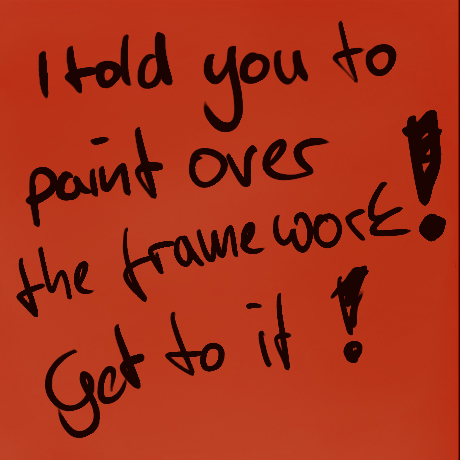 I told you to
paint over
the framework!
Get to it!